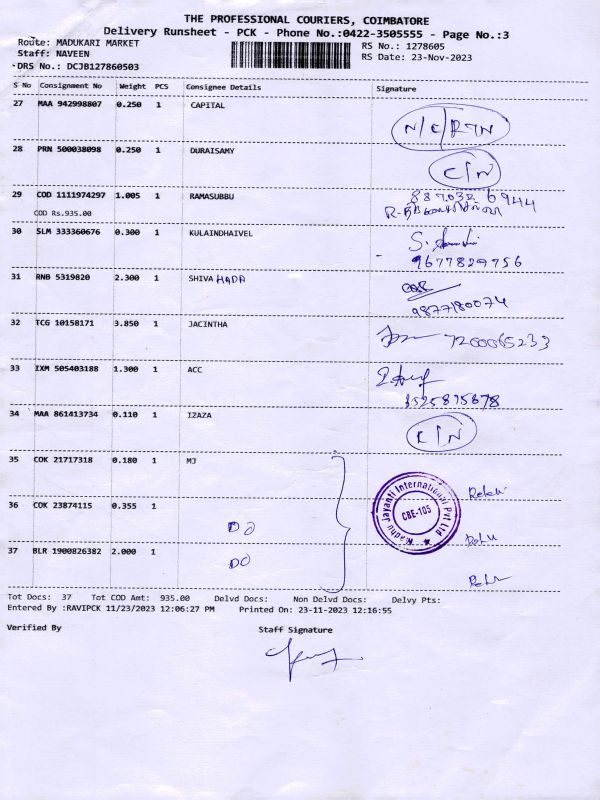 THE PROFESSIONAL COURIERS, COIMBATORE
Delivery Runsheet - PCK - Phone No.:0422-3505555 - Page No.:3
Route: MADUKARI MARKET
Staff: NAVEEN
DRS No.: DCJB127860503
RS No.: 1278605
RS Date: 23-Nov-2023
S No Consignment No. Weight PCS Consignee Details Signature
27 MAA 942998807 0.250 1 CAPITAL
N/C/RTN
28 PRN 500038098 0.250 1 DURAISAMY
C/N
29 COD 1111974297 1.005 1 RAMASUBBU
COD Rs.935.00
30 SLM 333360676 0.300 1 KULAINDHAIVEL
9677829756
31 RNB 5319820 2.300 1 SHIVA HADA
9877180074
32 TCG 10158171 3.850 1 JACINTHA
7200065233
33 IXM 505403188 1.300 1 ACC
34 MAA 861413734 0.110 1 IZAZA
35 COK 21717318 0.180 1 MJ
36 COK 23874115 0.355 1
DO
37 BLR 1900826382 2.000 1
DO
Madhu Jayanti International Pvt Ltd
CBE-105
Tot Docs: 37 Tot COD Amt: 935.00 Delvd Docs: Non Delvd Docs: Delvy Pts:
Entered By :RAVIPCK 11/23/2023 12:06:27 PM Printed On: 23-11-2023 12:16:55
Verified By Staff Signature